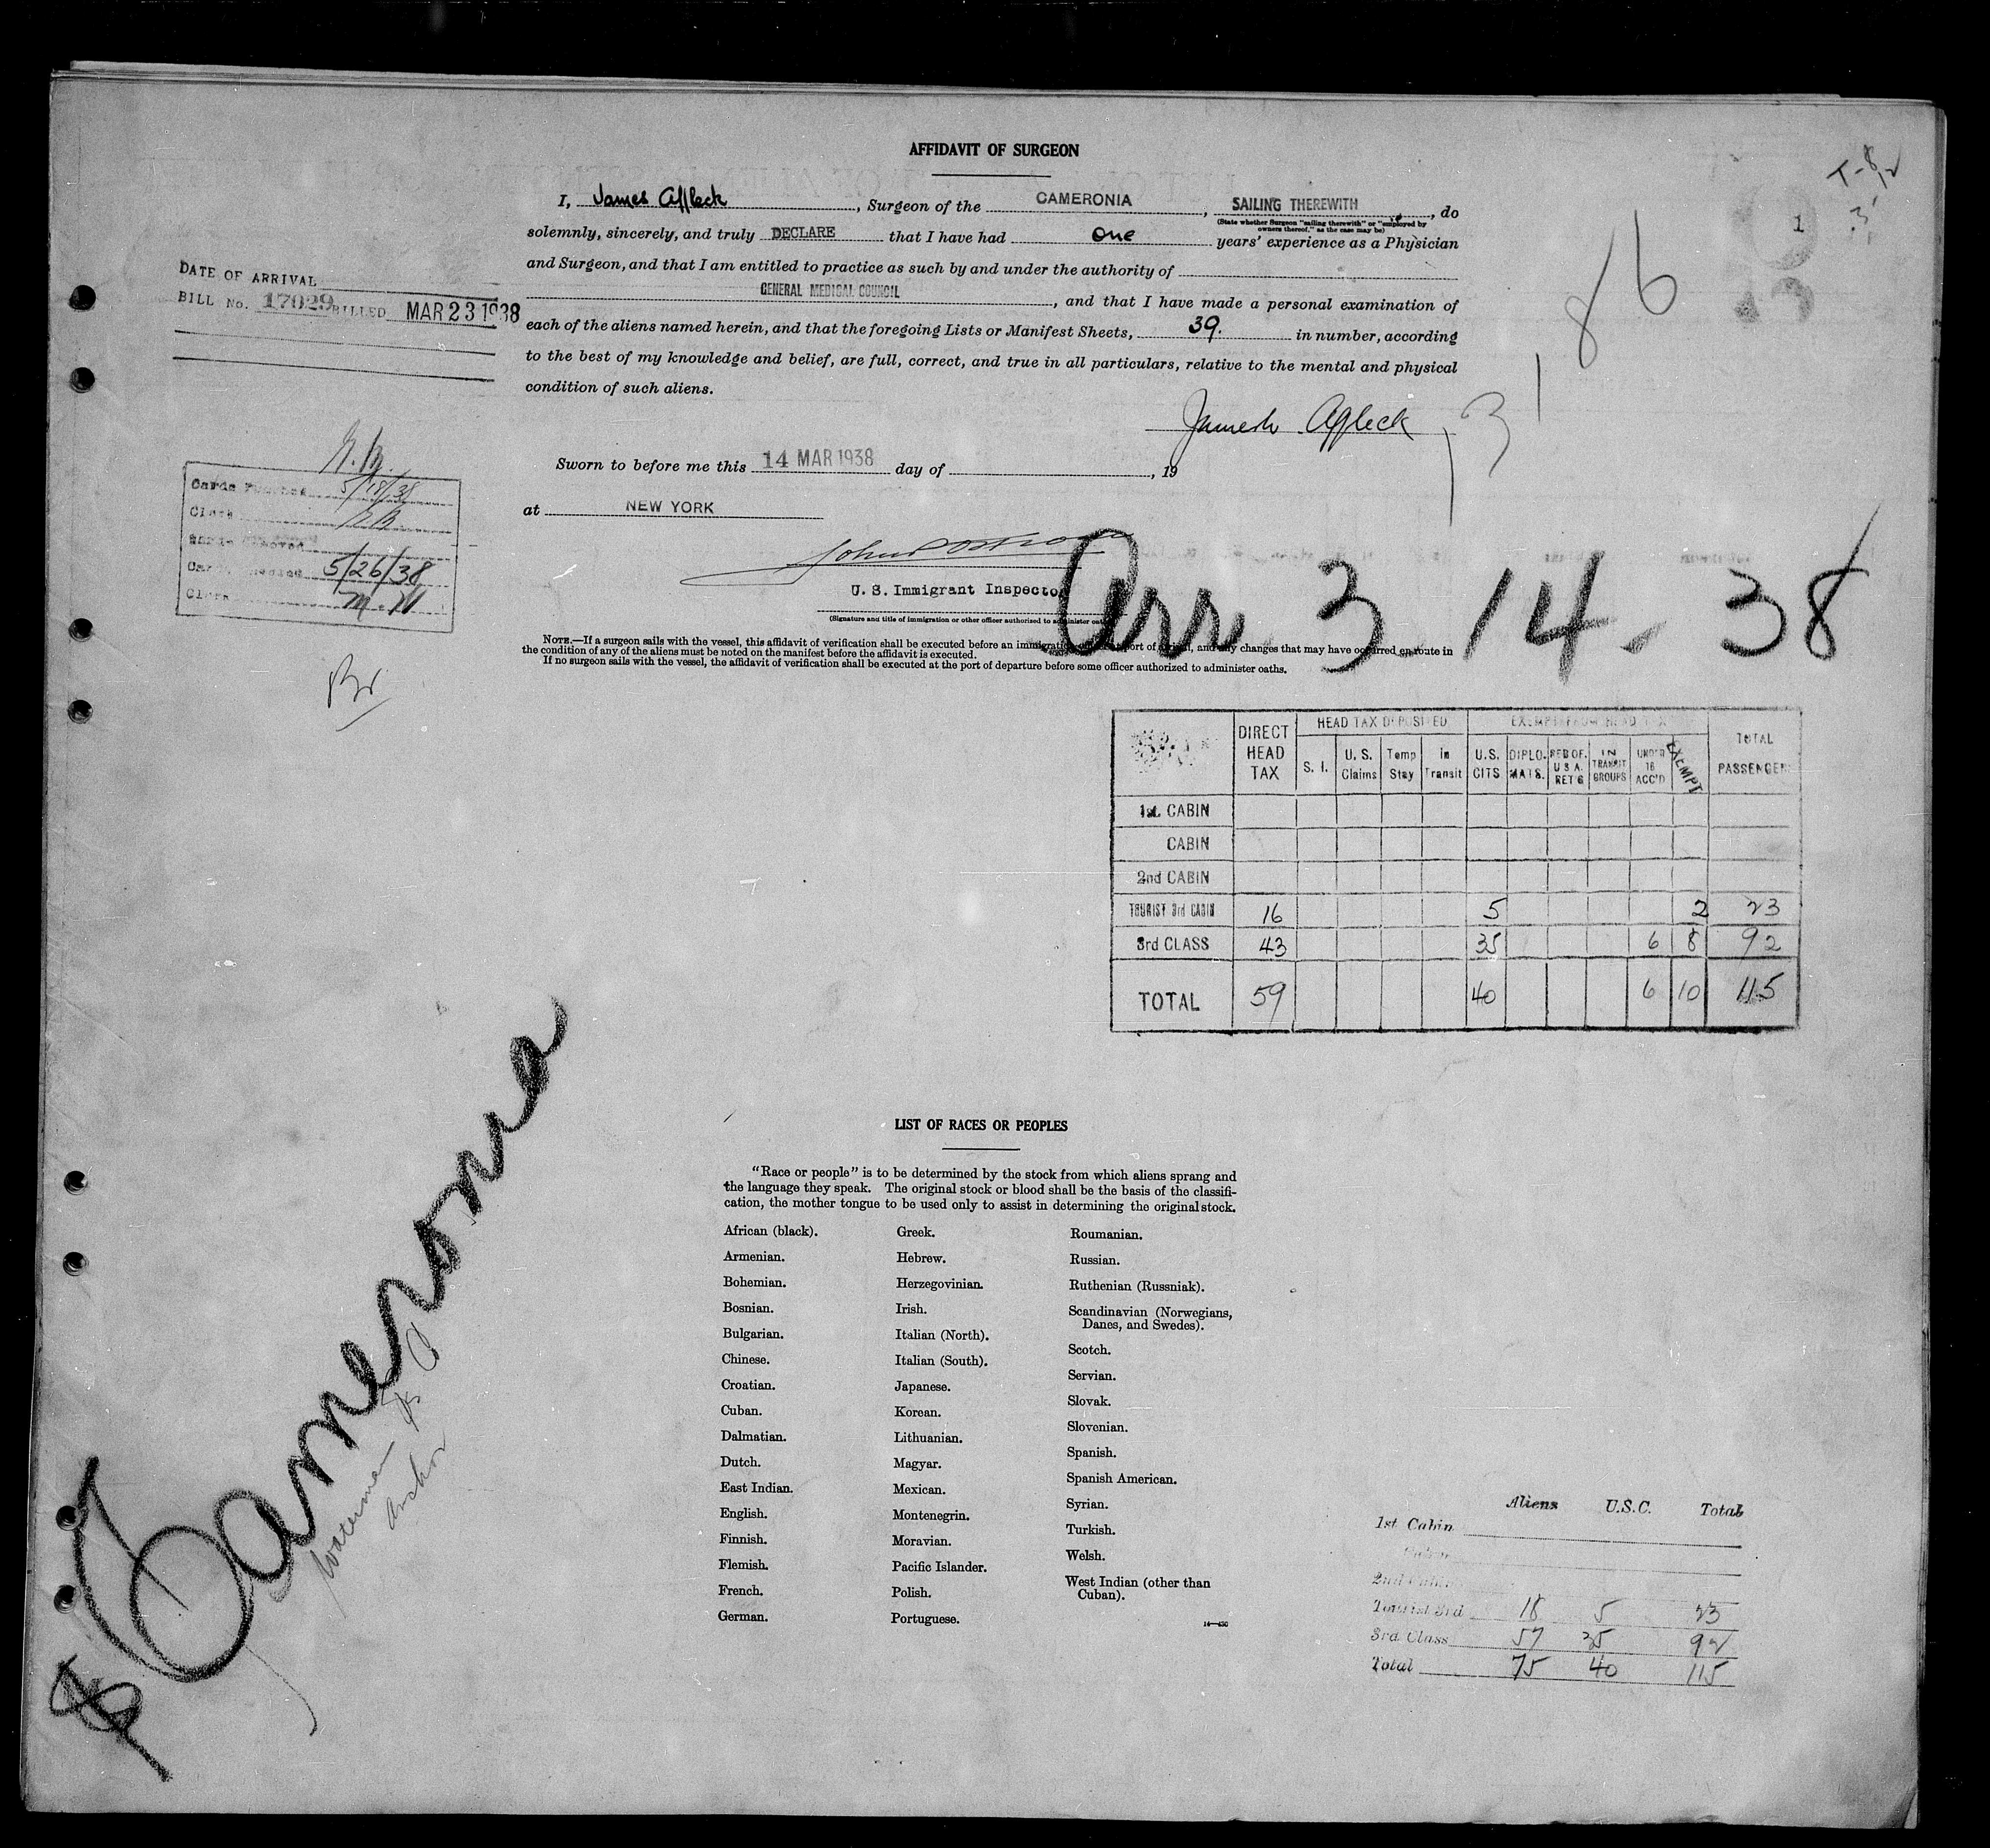 AFFIDAVIT OF SURGEON
I, James Affleck, Surgeon of the CAMERONIA, SAILING THEREWITH, do
(State whether Surgeon "sailing therewith" or "employed by owners thereof," as the case may be)
solemnly, sincerely, and truly DECLARE that I have had one years' experience as a Physician
and Surgeon, and that I am entitled to practice as such by and under the authority of
GENERAL MEDICAL COUNCIL, and that I have made a personal examination of
each of the aliens named herein, and that the foregoing Lists or Manifest Sheets, 39. in number, according
to the best of my knowledge and belief, are full, correct, and true in all particulars, relative to the mental and physical
condition of such aliens.
James Affleck
Sworn to before me this 14 MAR 1938 day of , 19
at NEW YORK
U. S. Immigrant Inspector
(Signature and title of immigration or other officer authorized to administer oaths)
NOTE.—If a surgeon sails with the vessel, this affidavit of verification shall be executed before an immigration port of arrival, and any changes that may have occurred en route in
the condition of any of the aliens must be noted on the manifest before the affidavit is executed.
If no surgeon sails with the vessel, the affidavit of verification shall be executed at the port of departure before some officer authorized to administer oaths.
1
86
DATE OF ARRIVAL
BILL No. 17029 BILLED MAR 23 1938
Cards Punched 5/18/38
Clerk
5/26/38
Clerk M. W
Arr 3-14-38
DIRECT HEAD TAX HEAD TAX DEPOSITED EXEMPT FROM HEAD TAX TOTAL PASSENGER
S. I. U. S. Claims Temp Stay In Transit U.S. CITS DIPLO. MATS. RES OF. U S A. RET'G IN TRANSIT GROUPS UNDER 16 ACC'D EXEMPT
1st. CABIN
CABIN
2nd CABIN
TOURIST 3rd CABIN 16 5 2 23
3rd CLASS 43 35 6 8 92
TOTAL 59 40 6 10 115
Cameronia
Waterman
Anchor
LIST OF RACES OR PEOPLES
"Race or people" is to be determined by the stock from which aliens sprang and
the language they speak. The original stock or blood shall be the basis of the classifi-
cation, the mother tongue to be used only to assist in determining the original stock.
African (black).
Armenian.
Bohemian.
Bosnian.
Bulgarian.
Chinese.
Croatian.
Cuban.
Dalmatian.
Dutch.
East Indian.
English.
Finnish.
Flemish.
French.
German.
Greek.
Hebrew.
Herzegovinian.
Irish.
Italian (North).
Italian (South).
Japanese.
Korean.
Lithuanian.
Magyar.
Mexican.
Montenegrin.
Moravian.
Pacific Islander.
Polish.
Portuguese.
Roumanian.
Russian.
Ruthenian (Russniak).
Scandinavian (Norwegians,
Danes, and Swedes).
Scotch.
Servian.
Slovak.
Slovenian.
Spanish.
Spanish American.
Syrian.
Turkish.
Welsh.
West Indian (other than
Cuban).
Aliens U.S.C. Total
1st Cabin
Cabin
2nd Cabin
Tourist 3rd 18 5 23
3rd Class 57 35 92
Total 75 40 115